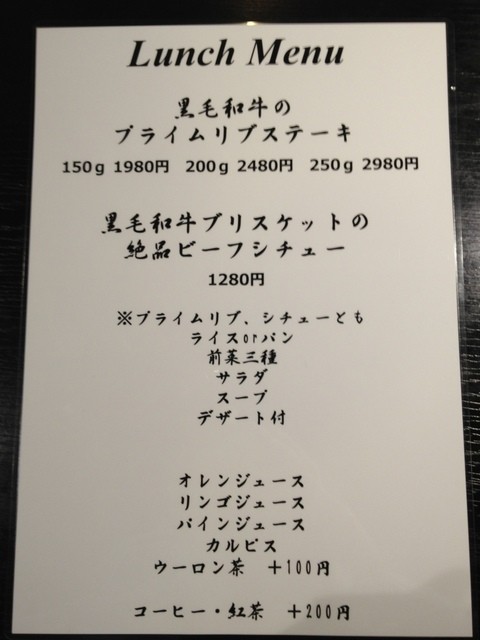 Lunch Menu
黒毛和牛の
プライムリブステーキ
150g 1980円 200g 2480円 250g 2980円
黒毛和牛ブリスケットの
絶品ビーフシチュー
1280円
※プライムリブ、シチューとも
ライスorパン
前菜三種
サラダ
スープ
デザート付
オレンジュース
リンゴジュース
パインジュース
カルピス
ウーロン茶 +100円
コーヒー・紅茶 +200円